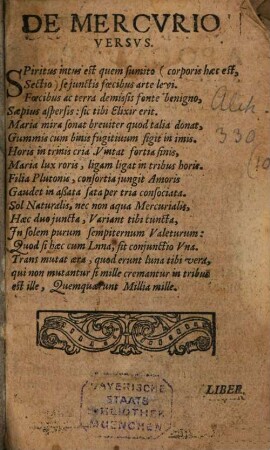 DE MERCVRIO
VERSVS.
SPiritus intus est quem sumito (corporis hæc est,
Sectio) se junctis fœcibus arte levi.
Fœcibus ac terra demissis fonte benigno,
Sæpius aspersis: sic tibi Elixir erit.
Maria mira sonat breviter quod talia donat,
Gummis cum binis fugitivum figit in imis.
Horis in trinis tria fortia finis,
Maria lux roris, ligam ligat in tribus horis.
Filia Plutonis, consortia jungit Amoris
Gaudet in assata sata per tria consociata.
Sol Naturalis, nec non aqua Mercurialis,
Hæc duo juncta, Variant tibi cuncta,
In solem purum sempiternum Valeturum:
Quod si hæc cum Luna, sit conjunctio Vna.
Trans mutat æra, quod erunt luna tibi vera,
qui non mutantur si mille cremantur in tribus
est ille, Millia mille.
LIBER
BAYERISCHE
STAATS
BIBLIOTHEK
MUENCHEN
Alch
330